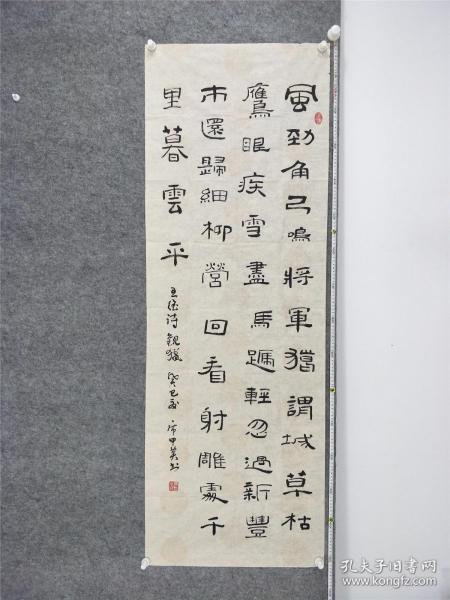 風勁角弓鳴將軍獵謂城草枯
鷹眼疾雪盡馬蹄輕忽過新豐
市還歸細柳營回看射雕處千
里暮雲平
王维诗觀獵 癸巳
孔夫子旧书网
www.kongfz.com